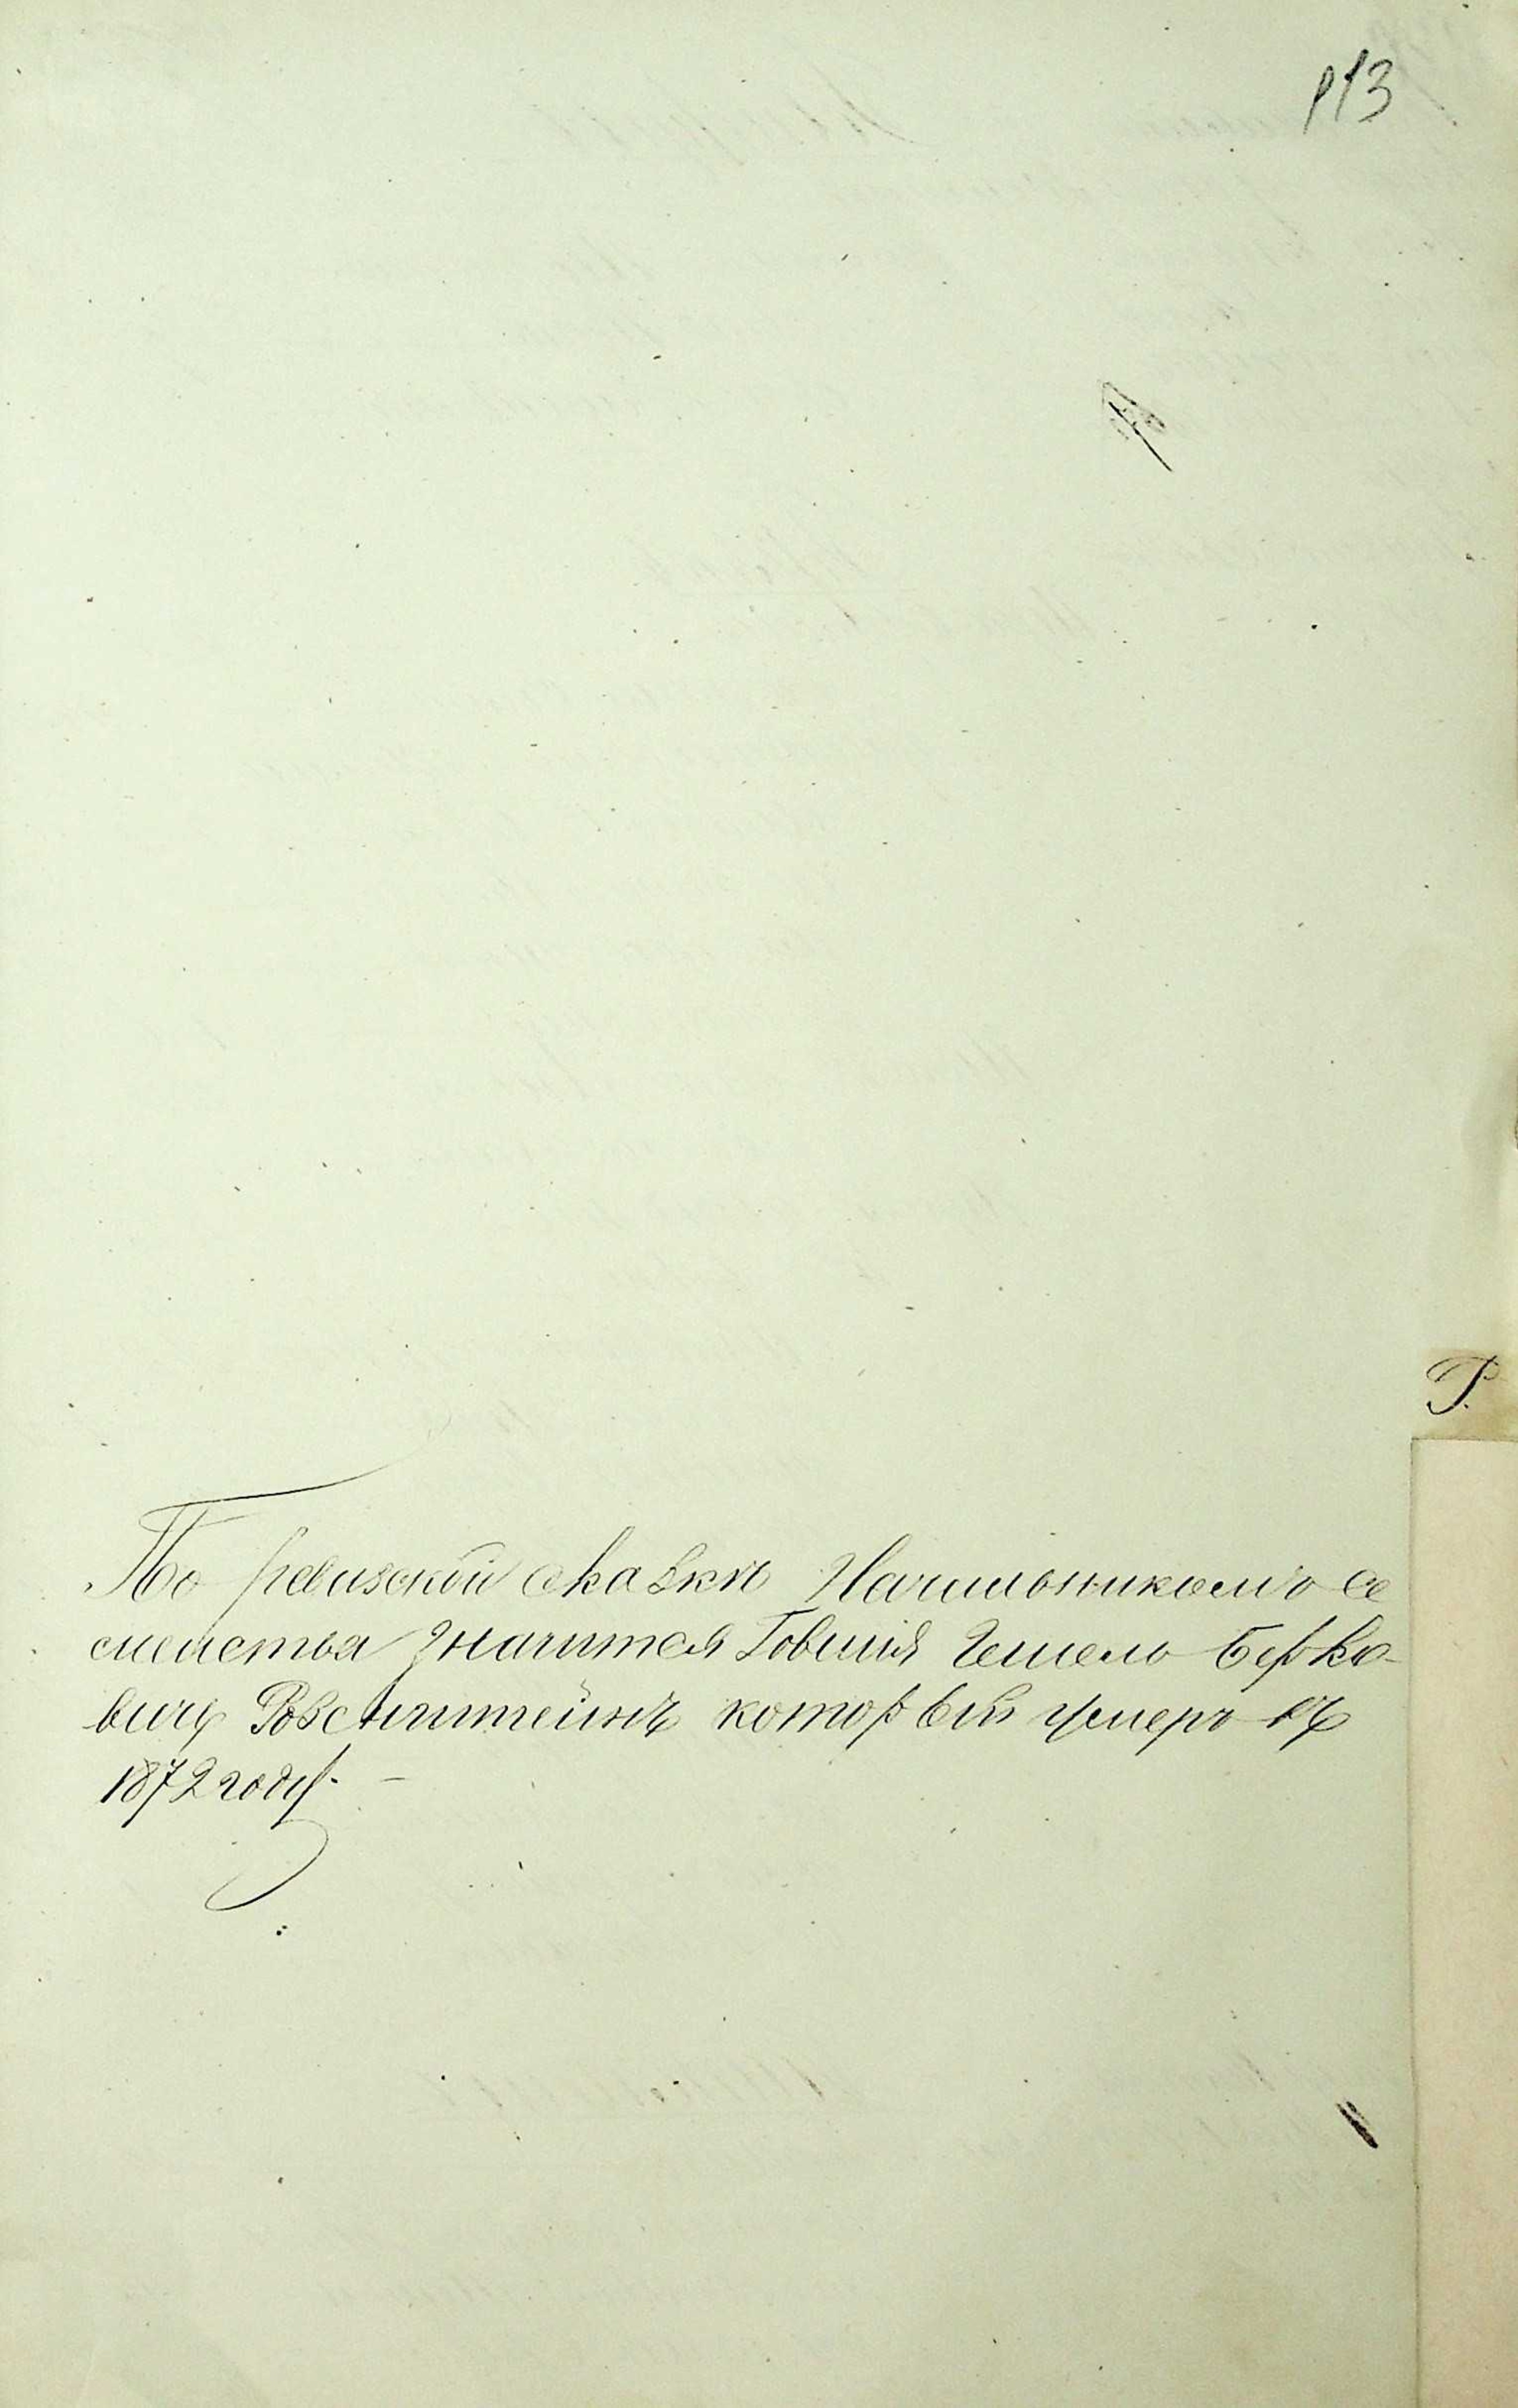 р13
Р.
По ревизской сказки Начальникомъ се
мейства значится Говшія Гешель Берко-
вичъ Розенштейнъ который умеръ въ
1872 году.